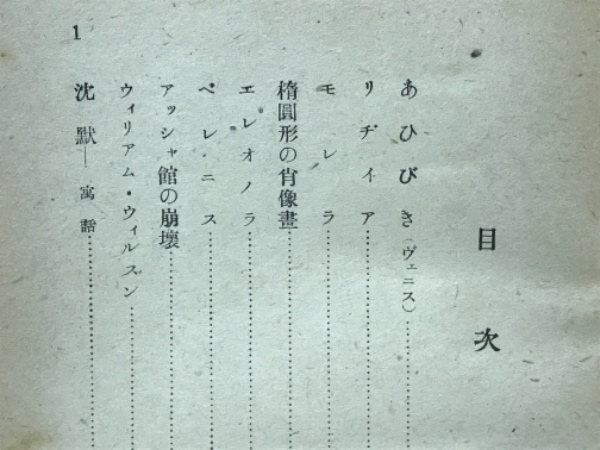 目次
あひびき(ヴェニス)
リヂイア
モレラ
楕圓形の肖像畫
エレオノラ
ベレニス
アッシャ館の崩壞
ウィリアム・ウィルズン
沈默—寓話
1